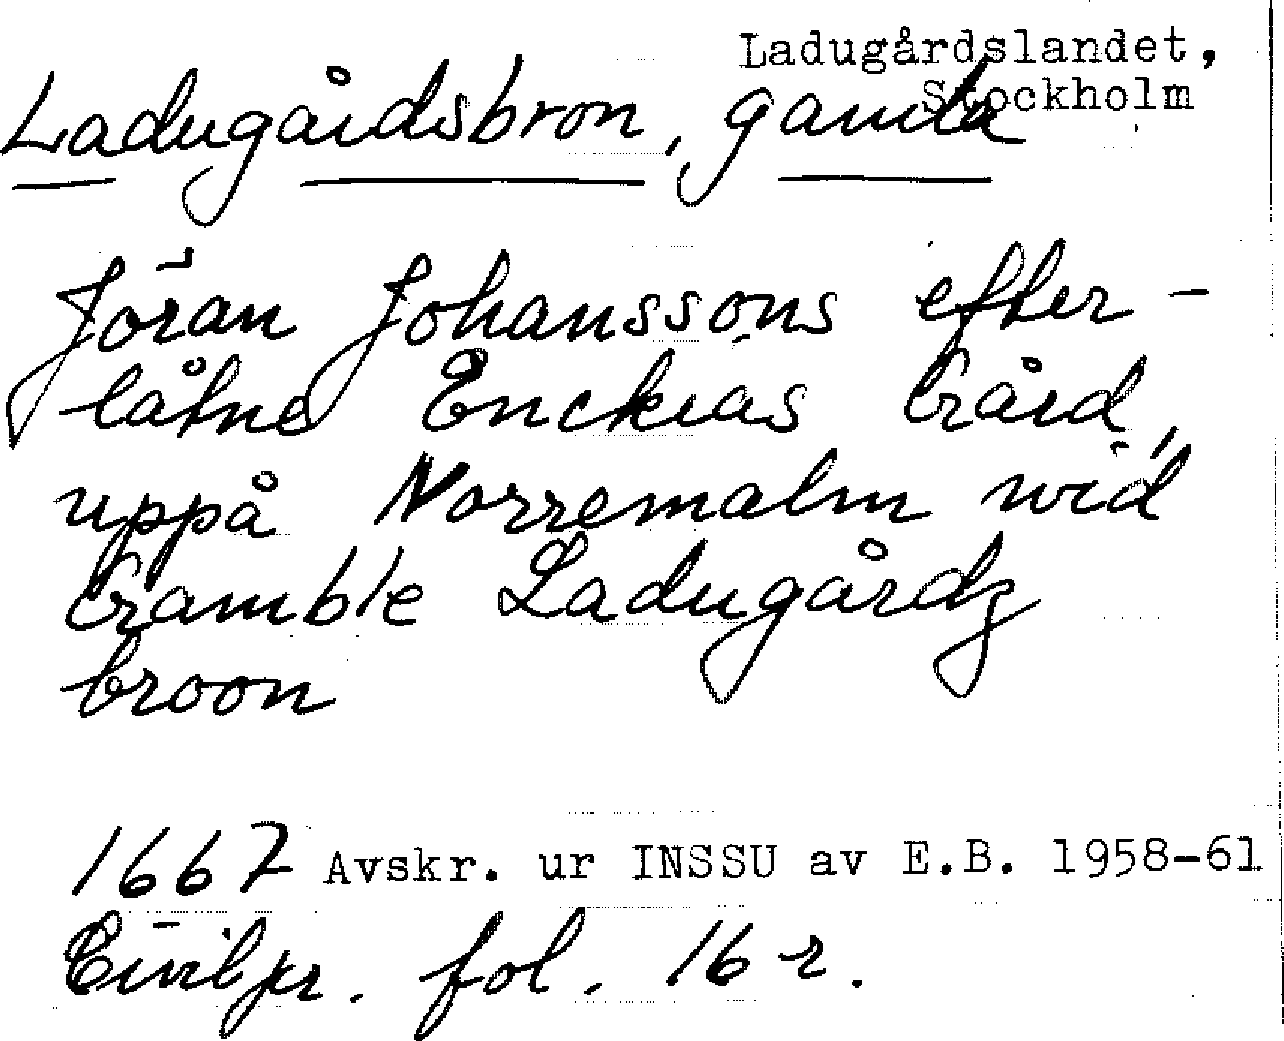 Ladugårdslandet,
Stockholm
Ladugårdsbron, gamla
Jöran Johanssons efter-
låtne Enckias Gård,
uppå Norremalm wid
Gamble Ladugårdz
broon
1667 Avskr. ur INSSU av E.B. 1958-61
Civilpr. fol. 16 r.